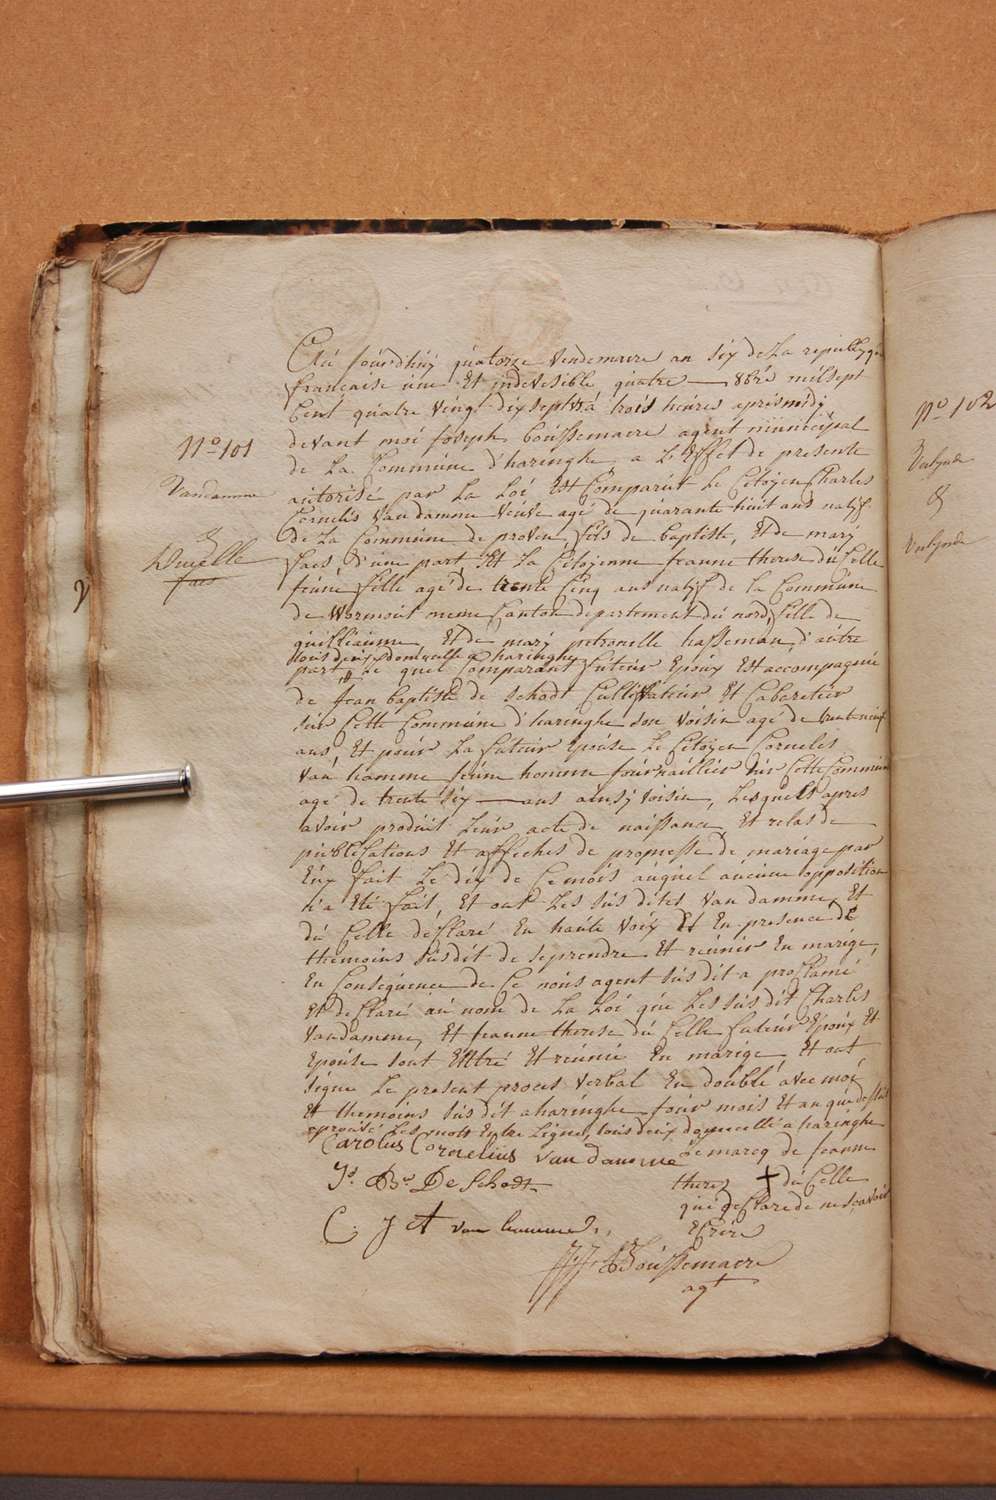 Cejourdhuy quatorze vendemaire an six de la republique
francaise une Et indevisible quatre — 8bre mil sept
Cent quatre vingt dix sept à trois heures apres midi
devant moi Joseph Boussemaere agent municipal
de La Commune d'haringhe a L'Effet de presente
autorisé par La Loi Est Comparut Le Citoyen Charles
Cornelis Vandamme veuve agé de quarante huit ans natif
de La Commune de proven, fils de baptiste, Et de mary
faes, d'une part, Et La Citoyenne Jeanne therese du Celle
jeune fille agé de trente Cinq ans natif de la Commune
de Wormout meme Canton departement du nord, fille de
guilliaume Et de mary petronelle hasseman, d'autre
tous deux domicille a haringhe
part, Le quel Comparant futeur Epoux Est accompagnié
de Jean baptiste de Schodt Cultivateur Et Cabareteur
sur Cette Commune d'haringhe son voisin agé de trente neuf
ans, Et pour La futeur Epouse Le Citoyen Cornelis
Van hamme jeune homme journaillier sur Cette Commune
agé de trente six — ans ainsy voisin, Lesquels apres
avoir produit Leur acte de naissance, Et relas de
publications Et affiches de promesse de mariage par
Eux fait Le dix de Ce mois auquel aucune opposition
n'a Eté fait, Et ont Les sus dites Vandamme, Et
du Celle desclaré En haute voix Et En presence de
themoins susdit de seprendre Et reunir En marige,
En Consequence de Ce nous agent susdit a proclamé
Et desclaré au nom de La Loi que Les susdit Charles
Vandamme, Et Jeanne therese du Celle futeur Epoux Et
Epouse sont Entré Et reunie En marige, Et ont
signe Le present proces verbal En double avec moi
Et themoins susdit a haringhe jour mois Et an que dessus
aprouvé Les mots Entre Ligne, tous deux domicillé a haringhe
Carolus Cornelius van damme
Le marcq de Jeanne
Js. Bte. De Schodt
theres + du Celle
qui desclare de ne scavoir
C. J A van hamme
Ecrire
JJ Boussemaere
agt
No 101
Vandamme
&
duCelle
faes
No 102
&